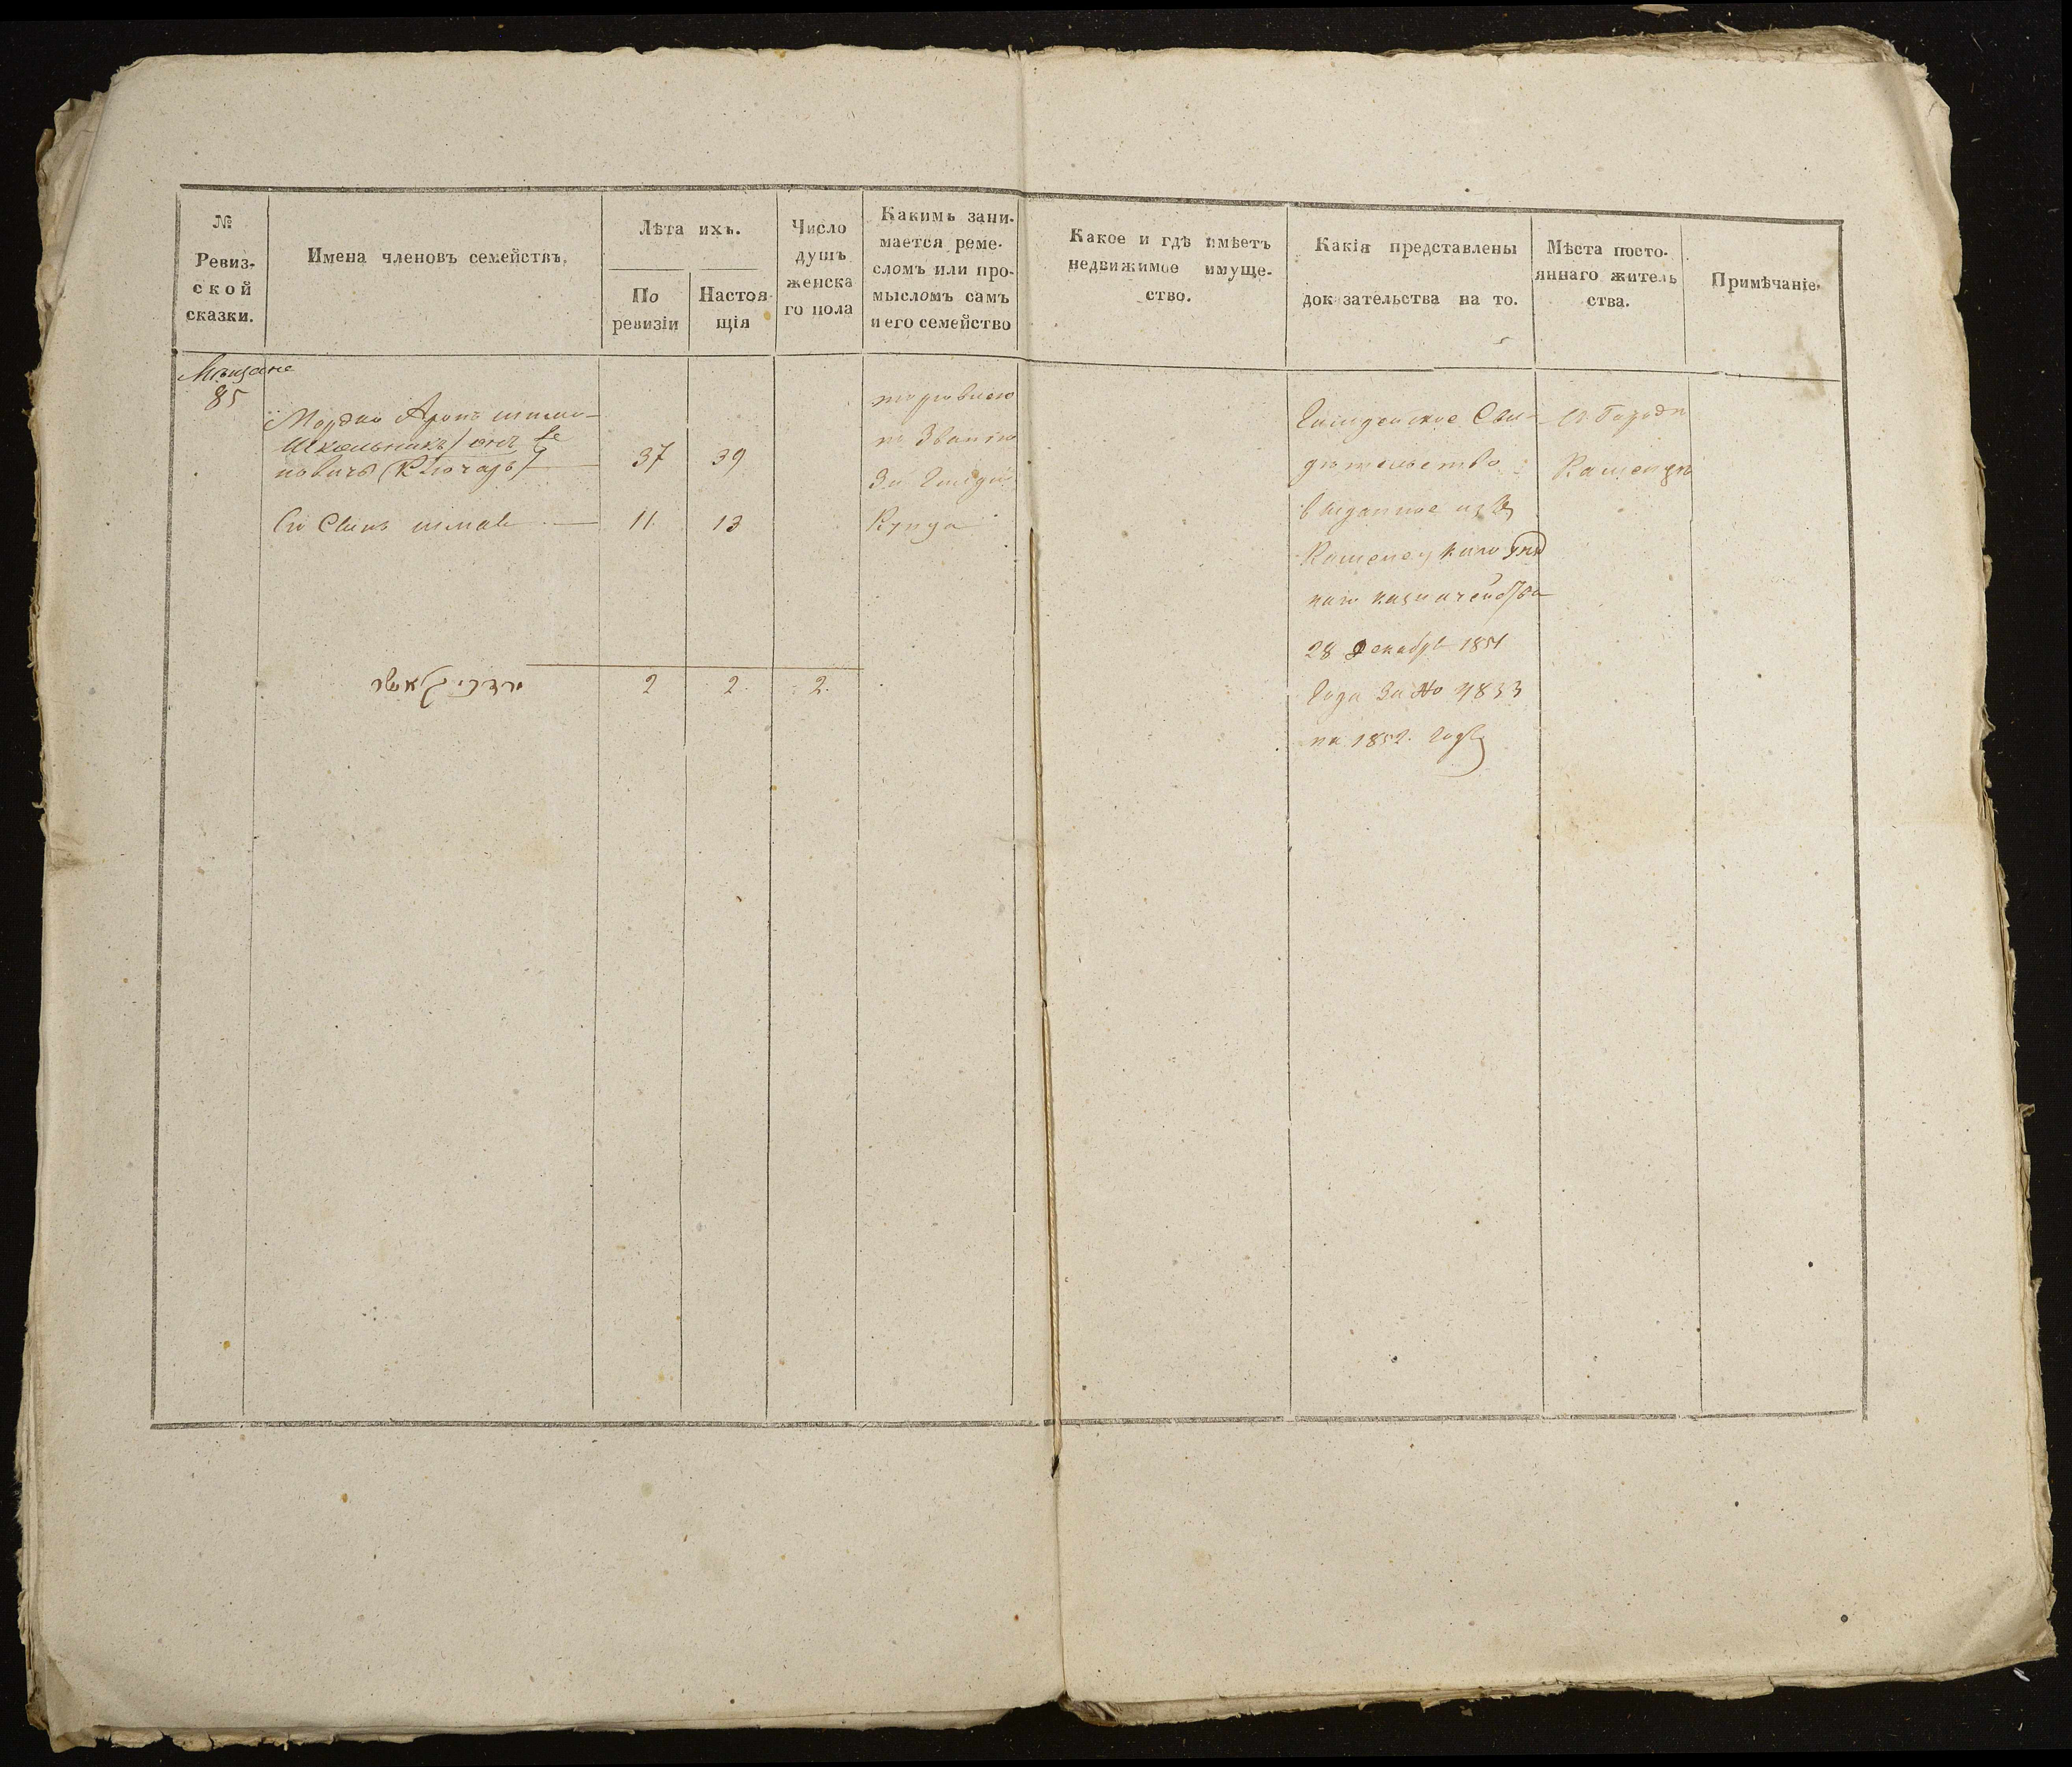 №
Ревиз-
ской
сказки.
Имена членовъ семействъ.
Лѣта ихъ.
По
ревизіи
Настоя
щія
Число
душъ
женска
го пола
Какимъ зани-
мается реме-
сломъ или про-
мысломъ самъ
и его семейство
Какое и гдѣ имѣетъ
недвижимое имуще-
ство.
Какія представлены
док зательства на то.
Мѣста посто-
яннаго житель
ства.
Примѣчаніе.
Мѣщане
85
Мордко Аронъ
Школьникъ) онъ же
(Ключаръ)
37
39
торговлею
по званію
3й гильдіи
Купца
Гильдейское Сви-
дѣтельство
выданное изъ
Каменецкаго
каго казначейства
28 декабря 1851
Года за № 4833
на 1852. годъ
Въ Городѣ
Каменцѣ
Его Сынъ
11
13
2
2
2.